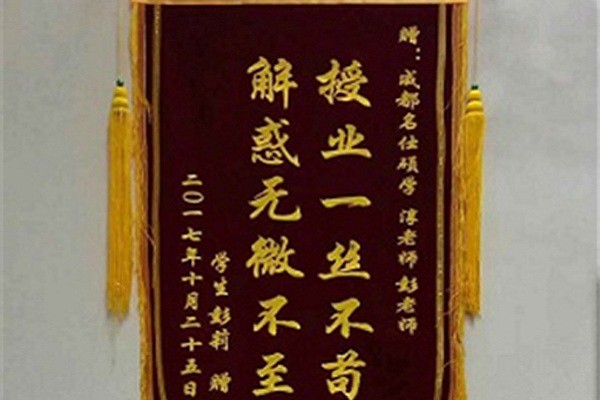 赠：成都名仕硕学 淳老师 彭老师
授业一丝不苟
解惑无微不至
学生 彭莉 赠
二〇一七年十月二十五日